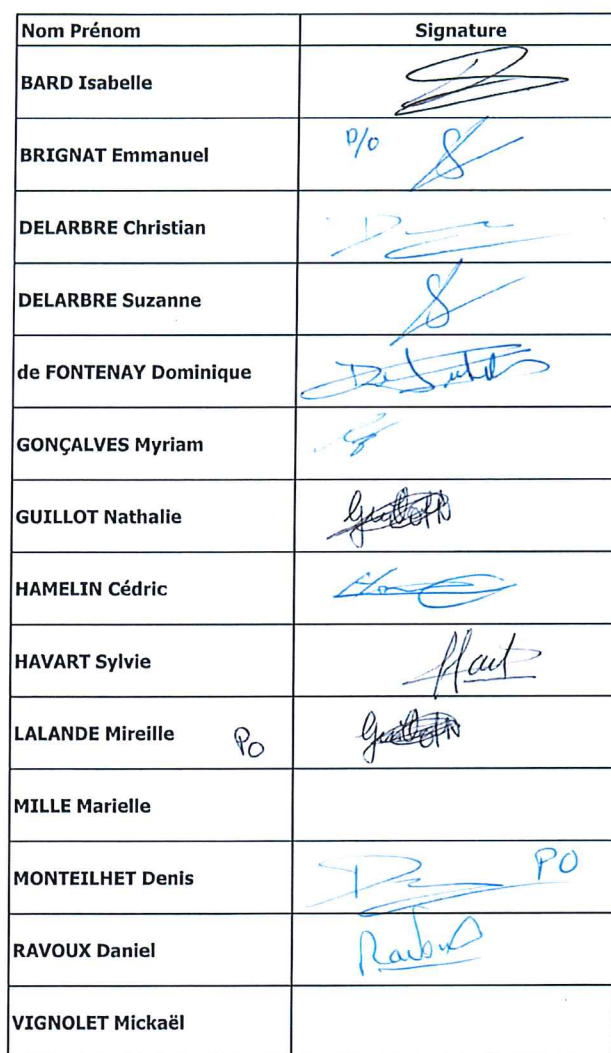 Nom Prénom Signature
BARD Isabelle
BRIGNAT Emmanuel P/O
DELARBRE Christian
DELARBRE Suzanne
de FONTENAY Dominique
GONÇALVES Myriam
GUILLOT Nathalie Guillot N
HAMELIN Cédric
HAVART Sylvie
LALANDE Mireille PO Guillot N
MILLE Marielle
MONTEILHET Denis PO
RAVOUX Daniel
VIGNOLET Mickaël